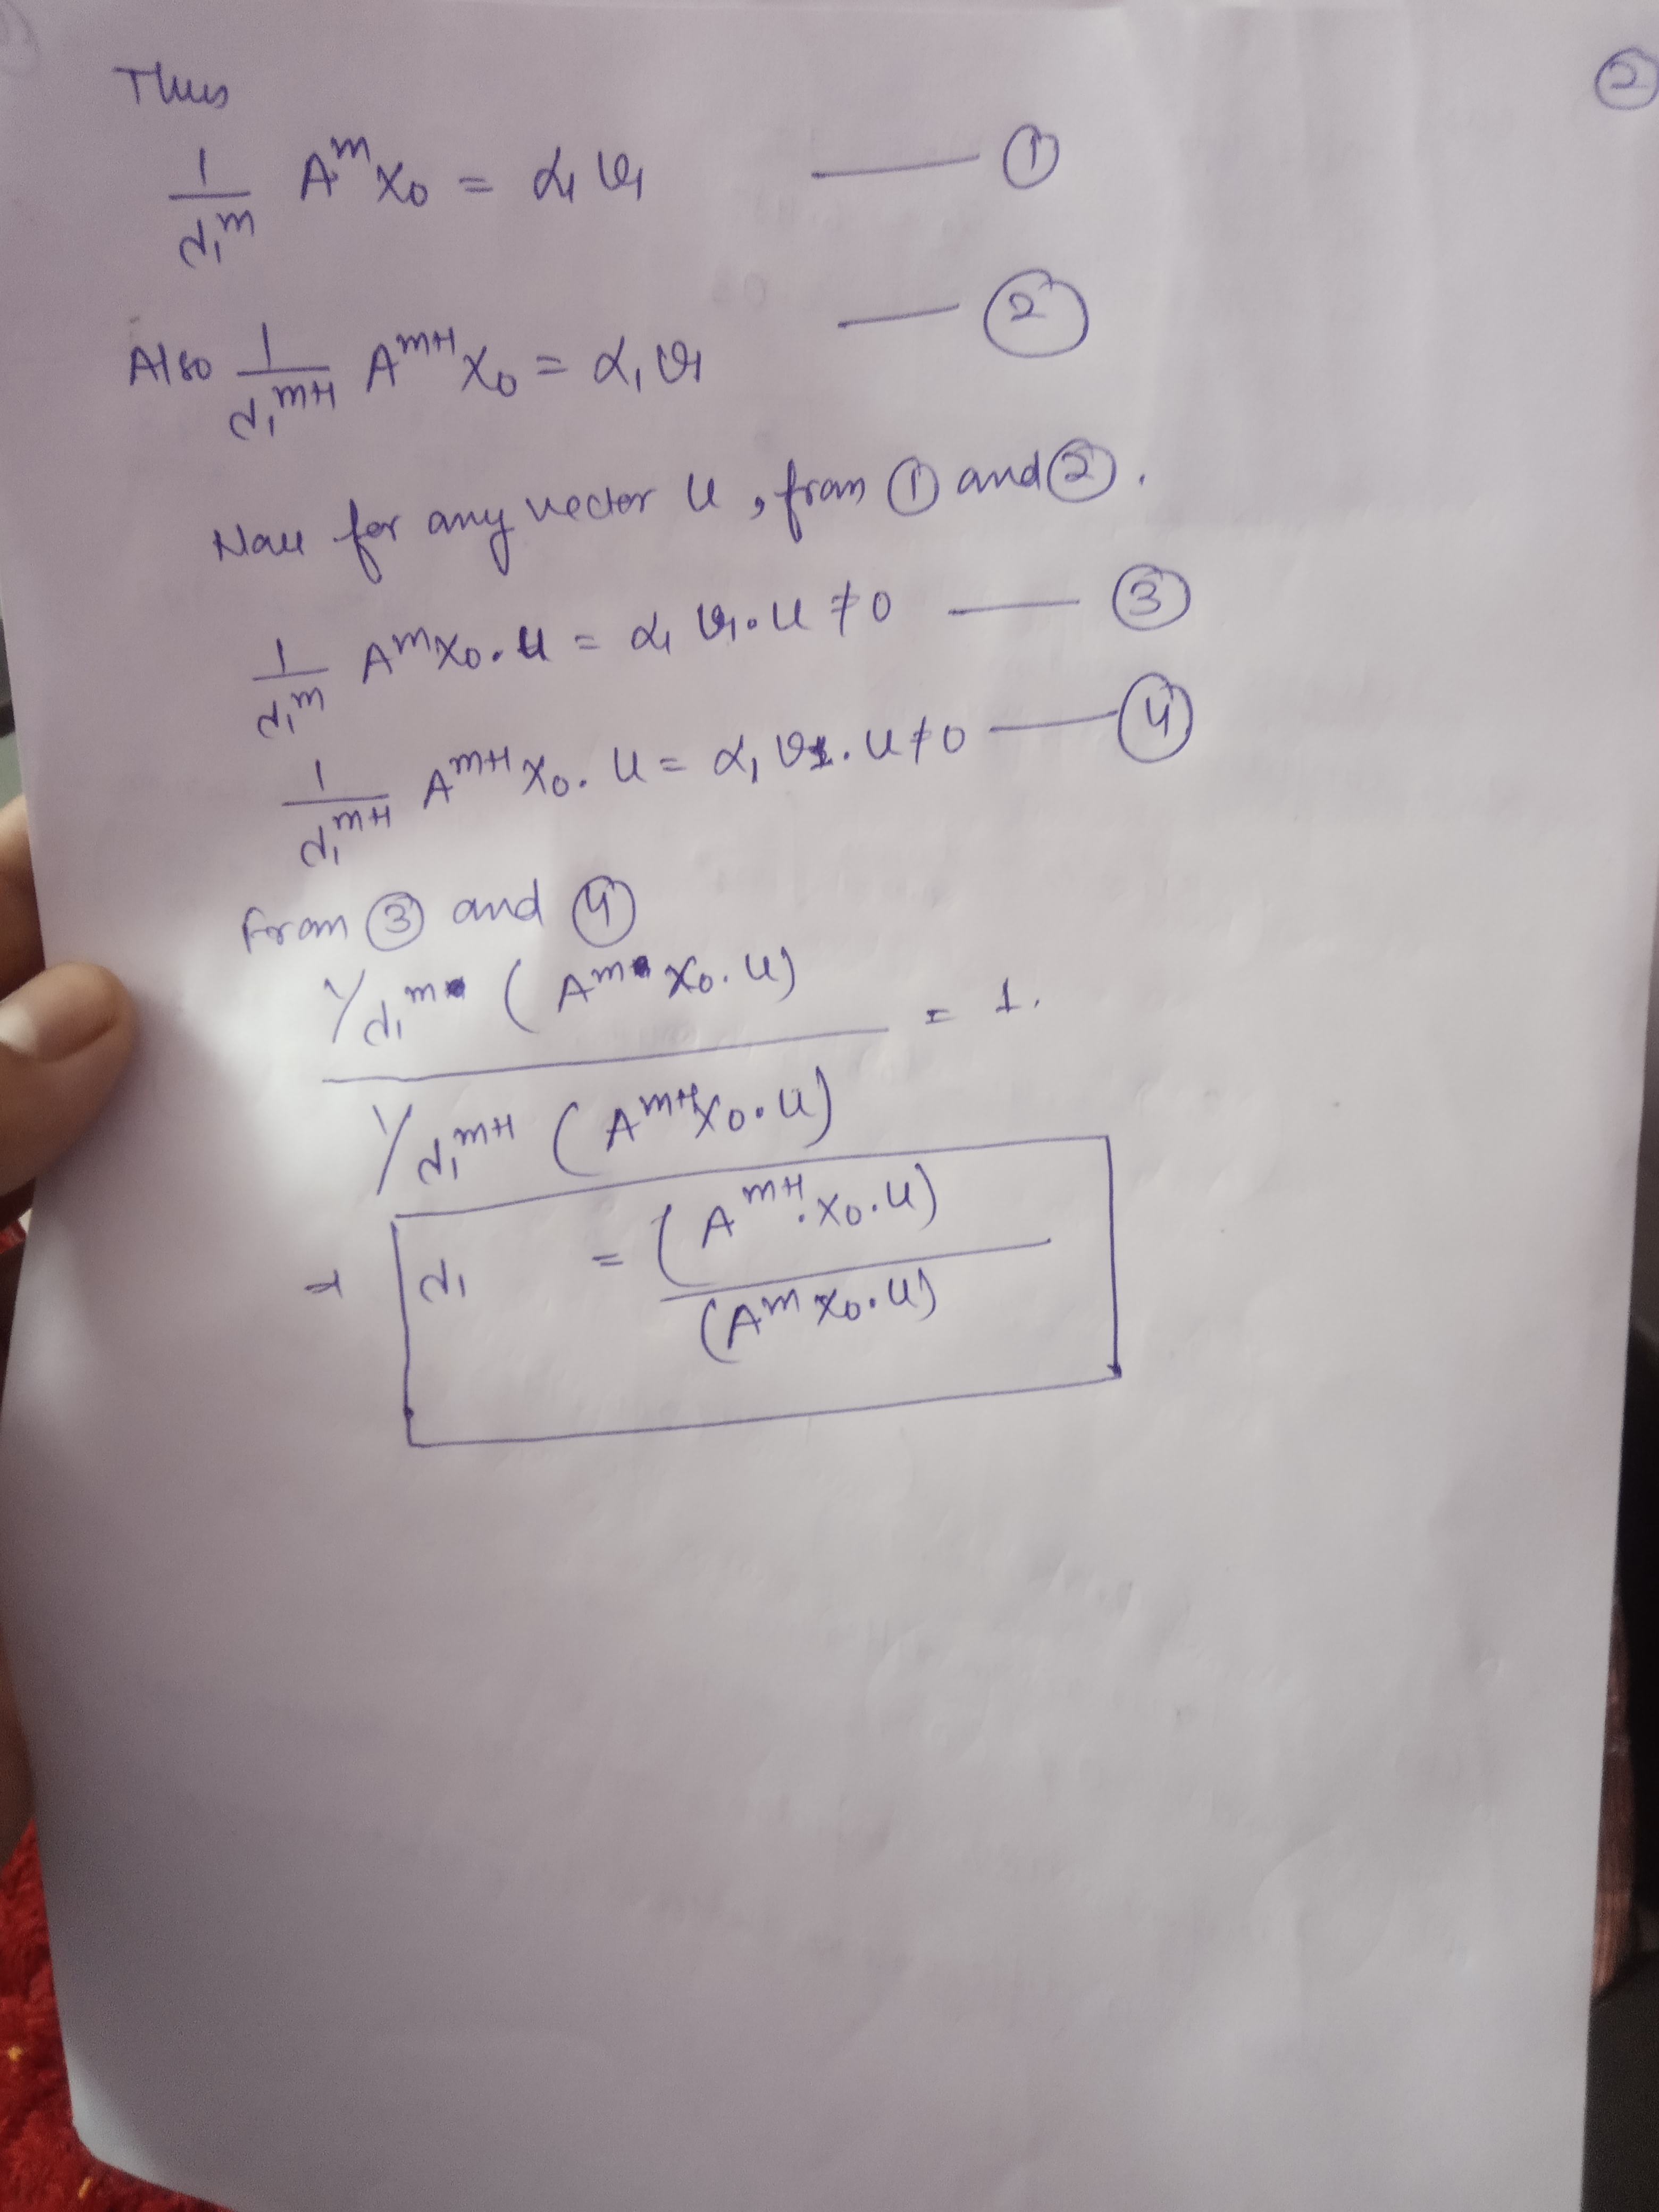 ②
Thus
1/λ₁ᵐ Aᵐ x₀ = α₁ v₁ —— ①
Also 1/λ₁ᵐ⁺¹ Aᵐ⁺¹ x₀ = α₁ v₁ —— ②
Now for any vector u, from ① and ②.
1/λ₁ᵐ Aᵐ x₀ . u = α₁ v₁ . u ≠ 0 —— ③
1/λ₁ᵐ⁺¹ Aᵐ⁺¹ x₀ . u = α₁ v₁ . u ≠ 0 —— ④
From ③ and ④
1/λ₁ᵐ (Aᵐ x₀ . u)
= 1.
1/λ₁ᵐ⁺¹ (Aᵐ⁺¹ x₀ . u)
⇒ λ₁ = (Aᵐ⁺¹ . x₀ . u) / (Aᵐ x₀ . u)